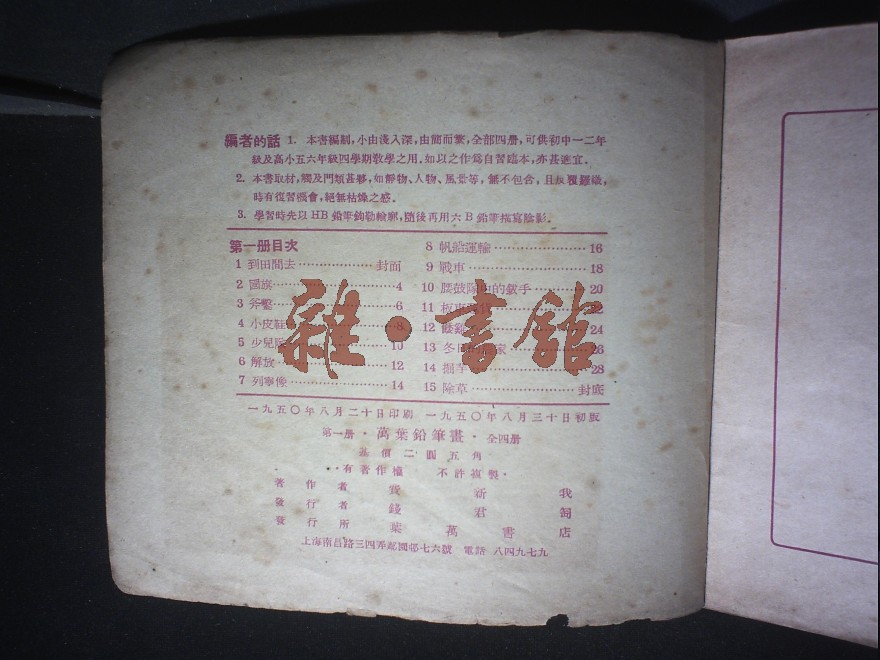 編者的話 1. 本書編制，小由淺入深，由簡而繁，全部四册，可供初中一二年
級及高小五六年級四學期敎學之用，如以之作爲自習臨本，亦甚適宜。
2. 本書取材，觸及門類甚夥，如靜物、人物、風景等，無不包含，且反覆錯綜，
時有復習機會，絕無枯燥之感。
3. 學習時先以 HB 鉛筆鉤勒輪廓，隨後再用六 B 鉛筆描寫陰影。
第一册目次
1 到田間去 封面
2 國旗 4
3 斧鑿 6
4 小皮鞋 8
5 少兒隊 10
6 解放 12
7 列寧像 14
8 帆船運輸 16
9 戰車 18
10 腰鼓隊中的鈸手 20
11 板車 22
12 24
13 冬日 家 26
14 掘芋 28
15 除草 封底
雜·書館
一九五〇年八月二十日印刷 一九五〇年八月三十日初版
第一册·萬葉鉛筆畫·全四册
基價二圓五角
·有著作權 不許複製·
著作者 費新我
發行者 錢君匋
發行所 葉萬書店
上海南昌路三四弄 七六號 電話 八四九七九